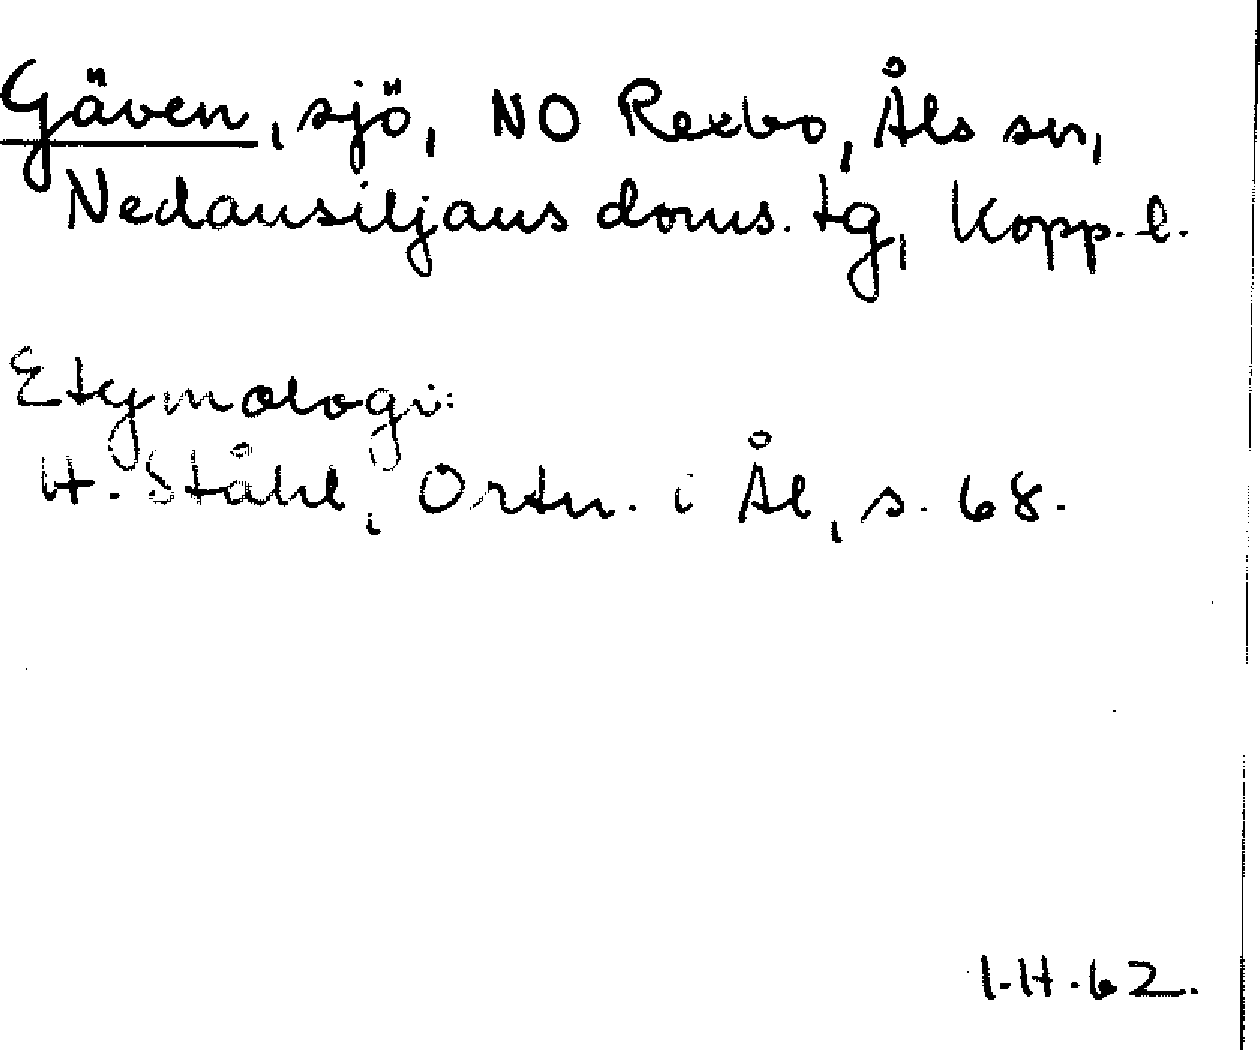 Gäven, sjö, NO Rexbo, Åls sn,
Nedansiljans doms. tg, Kopp. l.
Etymologi:
H. Ståhl, Ortn. i Ål, s. 68.
I.H. 62.